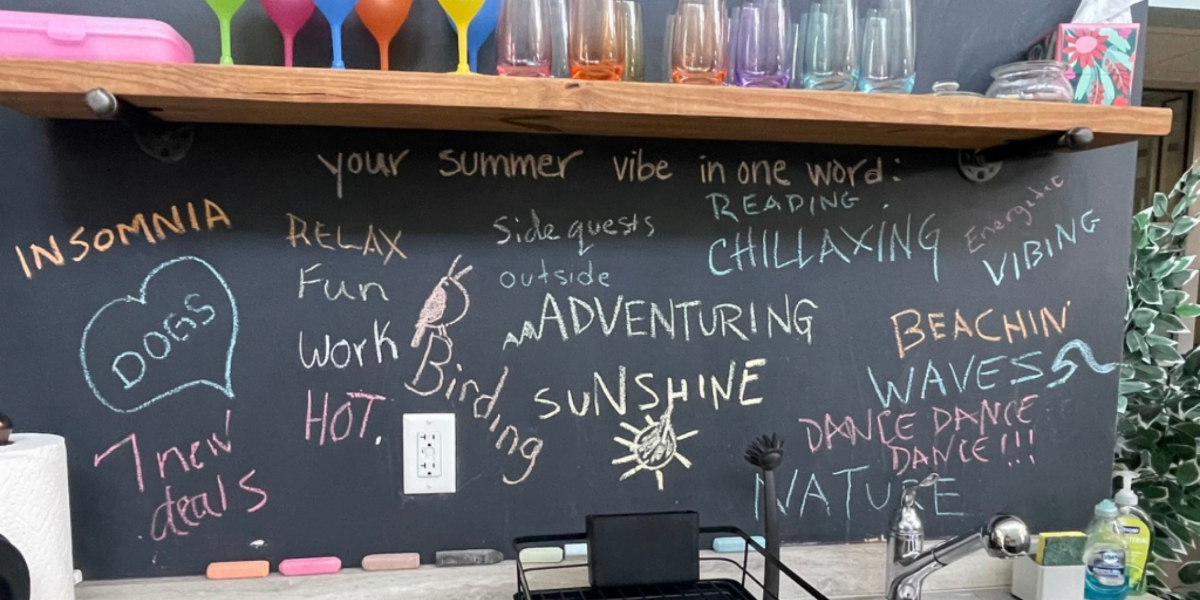 your summer vibe in one word:
INSOMNIA
DOGS
7 new
deals
RELAX
Fun
Work
HOT.
Birding
Side quests
outside
ADVENTURING
SUNSHINE
READING
CHILLAXING
Energetic
VIBING
BEACHIN'
WAVES
DANCE DANCE
DANCE!!!
NATURE